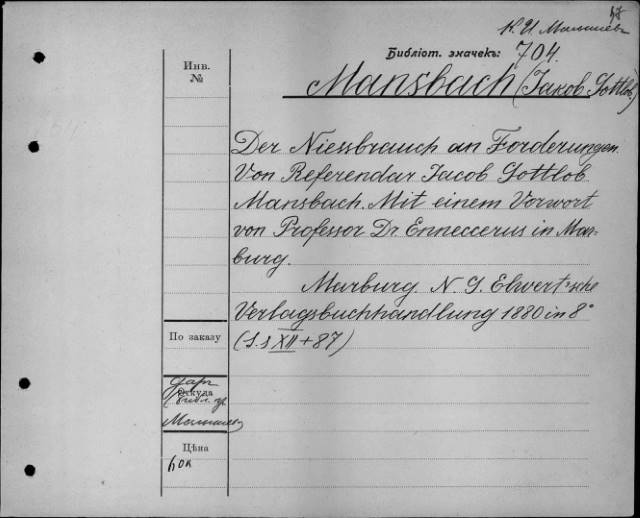 К. И. Малышевъ
Библіот. значекъ: 704.
Инв.
№
Mansbach (Jakob Gottlob)
Der Niessbrauch an Forderungen.
Von Referendar Jacob Gottlob
Mansbach. Mit einem Vorwort
von Professor Dr. Enneccerus in Mar-
burg.
Marburg. N. G. Elwert'sche
Verlagsbuchhandlung 1880 in 8°
(S.s XII + 87)
По заказу
Даръ
Откуда
библ. пр.
Малышев
Цѣна
60к